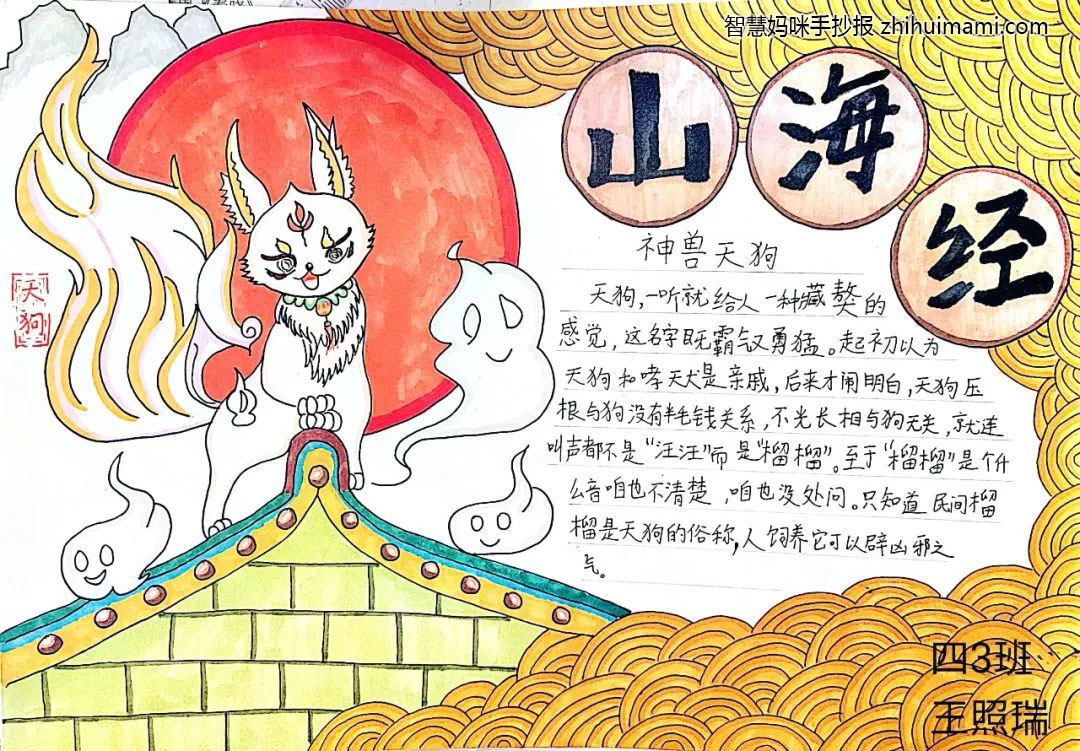 智慧妈咪手抄报 zhihuimami.com
山海经
神兽天狗
天狗,一听就给人一种藏獒的
感觉,这名字既霸气又勇猛。起初以为
天狗和哮天犬是亲戚,后来才闹明白,天狗压
根与狗没有半毛钱关系,不光长相与狗无关,就连
叫声都不是“汪汪”而是“榴榴”。至于“榴榴”是个什
么音咱也不清楚,咱也没处问。只知道民间榴
榴是天狗的俗称,人饲养它可以辟凶邪之
气。
天狗
四3班
王照瑞